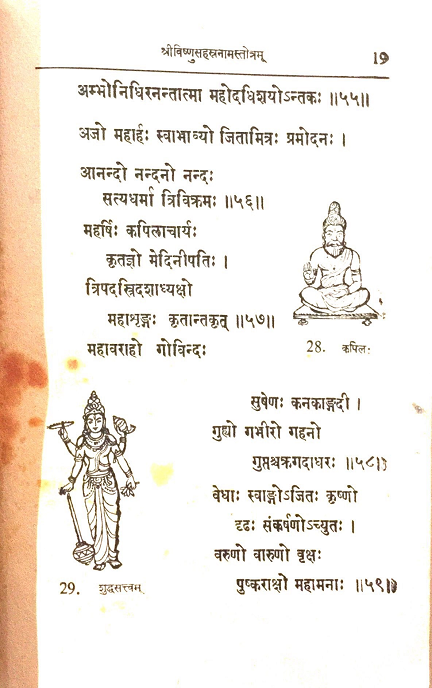 श्रीविष्णुसहस्रनामस्तोत्रम् 19
अम्भोनिधिरनन्तात्मा महोदधिशयोऽन्तकः ॥५५॥
अजो महार्हः स्वाभाव्यो जितामित्रः प्रमोदनः ।
आनन्दो नन्दनो नन्दः
सत्यधर्मा त्रिविक्रमः ॥५६॥
महर्षिः कपिलाचार्यः
कृतज्ञो मेदिनीपतिः ।
त्रिपदस्त्रिदशाध्यक्षो
महाशृङ्गः कृतान्तकृत् ॥५७॥
महावराहो गोविन्दः
28. कपिलः
सुषेणः कनकाङ्गदी ।
गुह्यो गभीरो गहनो
गुप्तश्चक्रगदाधरः ॥५८॥
वेधाः स्वाङ्गोऽजितः कृष्णो
दृढः संकर्षणोऽच्युतः ।
वरुणो वारुणो वृक्षः
पुष्कराक्षो महामनाः ॥५९॥
29. शुद्धसत्त्वम्